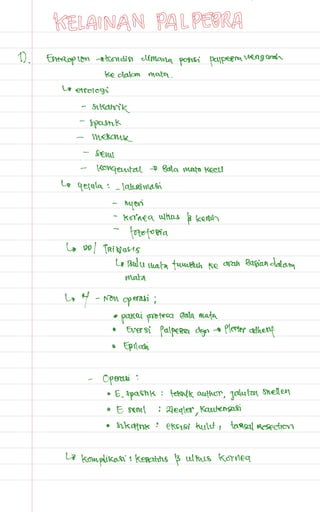 KELAINAN PALPEBRA
1). Entropion → kondisi dimana posisi palpebra mengarah
ke dalam mata.
↳ etiologi
- sikatrik
- spastik
- mekanik
- senil
- kongenital → Bola mata kecil
↳ gejala : - lakrimasi
- nyeri
- kornea ulkus & keratitis
- fotofobia
↳ DD/ Trikiasis
↳ Bulu mata tumbuh ke arah Bagian dalam
mata
↳ - Non operasi ;
• pakai protesa bola mata
• Eversi palpebra dgn → Plester adhesif
• Epilasi
- Operasi :
• E. spastik : teknik jahitan snellen
• E senil : ziegler, kauterisasi
• sikatrik : eksisi kulit, tarsal resection
↳ komplikasi : keratitis & ulkus kornea